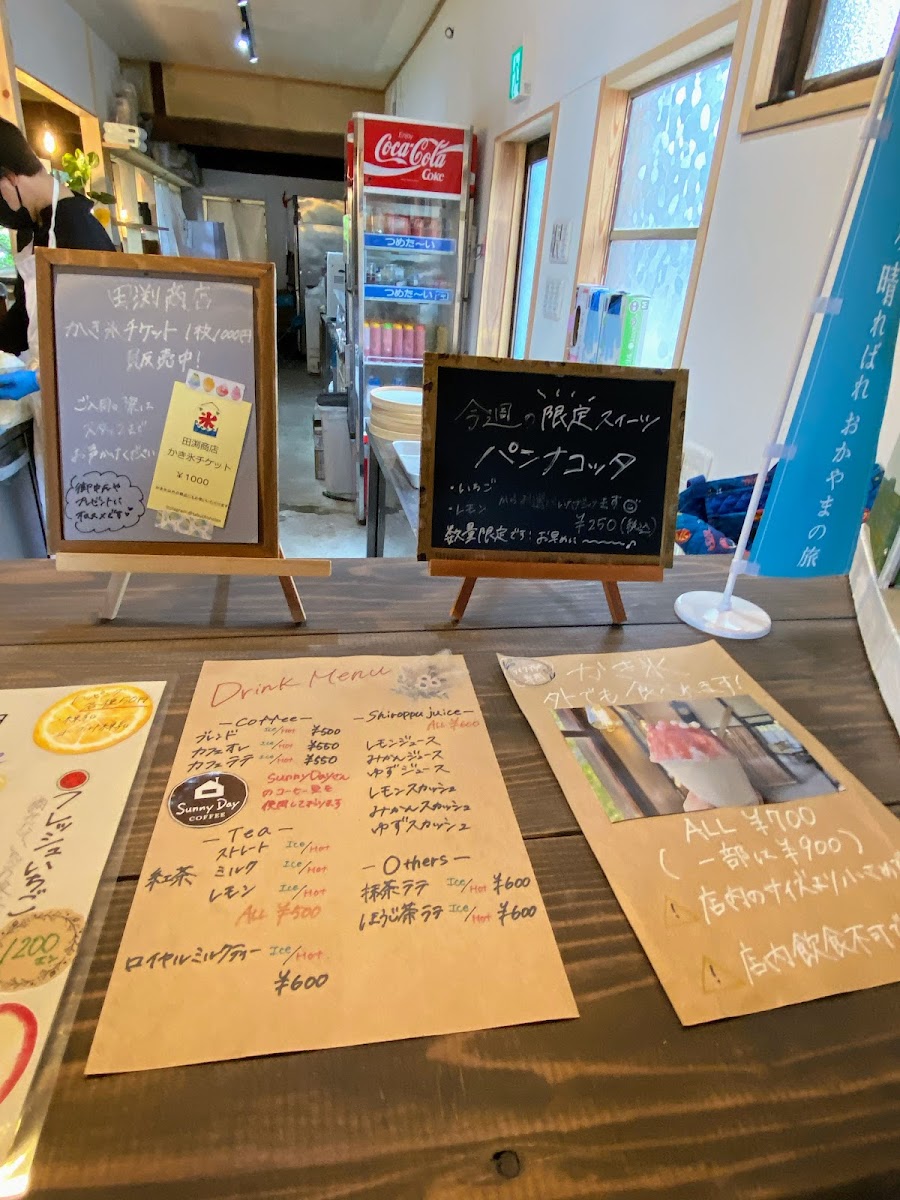 Enjoy
Coca-Cola
Coke
つめた〜い
つめた〜い
田渕商店
かき氷チケット1枚1000円
販売中!
ご入用の際は
スタッフまで
お声かけください
プレゼントに
オススメです♡
氷
田渕商店
かき氷チケット
¥1000
今週の限定スイーツ
パンナコッタ
・いちご
・レモン
¥250(税込)
数量限定です!お早めに〜♪
晴ればれ おかやまの旅
フレッシュいちご
1200
Drink Menu
—Coffee—
ブレンド Ice/Hot ¥500
カフェオレ Ice/Hot ¥550
カフェラテ Ice/Hot ¥550
Sunny Dayさん
のコーヒー豆を
使用しております
Sunny Day
COFFEE
—Tea—
紅茶
ストレート Ice/Hot
ミルク Ice/Hot
レモン Ice/Hot
All ¥500
ロイヤルミルクティー Ice/Hot
¥600
—Shiroppu juice—
ALL ¥600
レモンジュース
みかんジュース
ゆずジュース
レモンスカッシュ
みかんスカッシュ
ゆずスカッシュ
—Others—
抹茶ラテ Ice/Hot ¥600
ほうじ茶ラテ Ice/Hot ¥600
かき氷
外でも食べれます!
ALL ¥700
(一部は¥900)
店内のサイズより小さめ
店内飲食不可